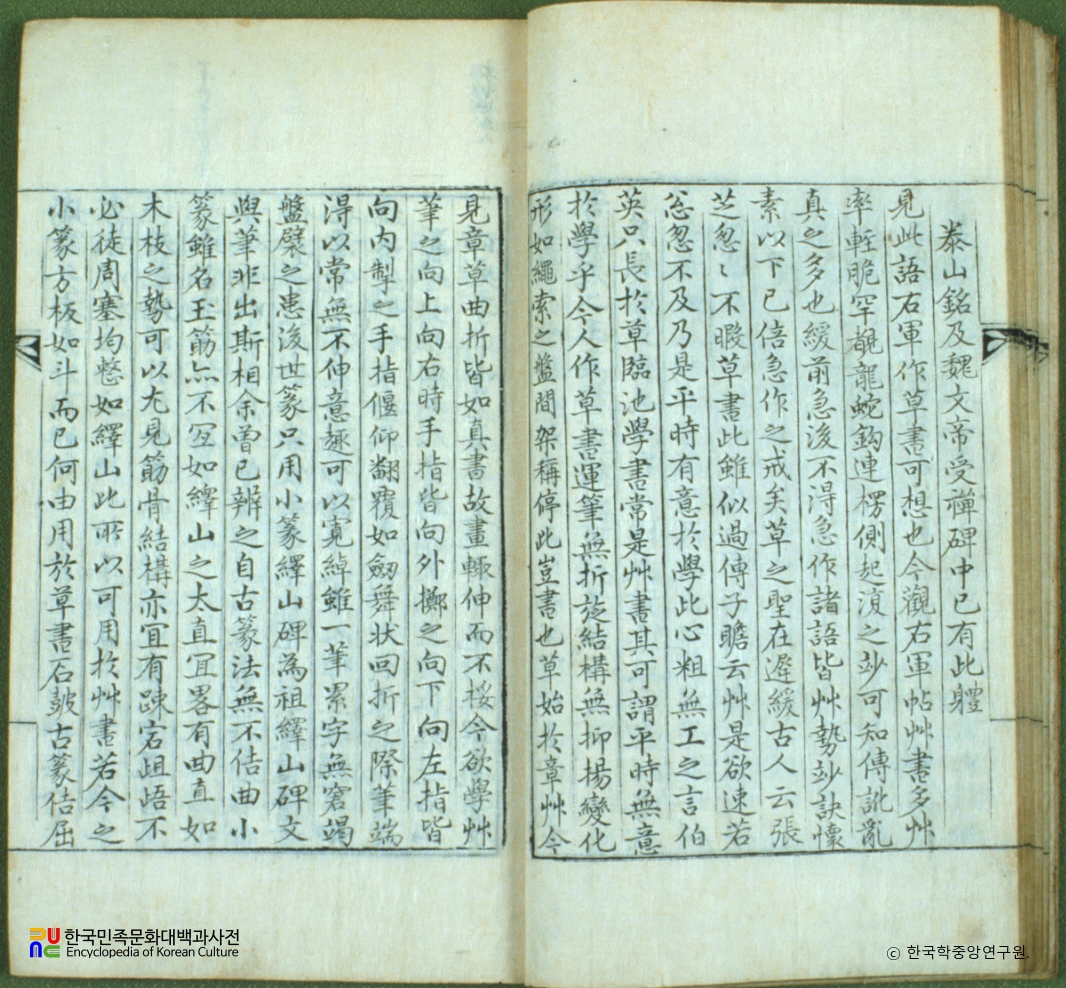 泰山銘及魏文帝受禪碑中已有此軆
見此語右軍作草書可想也今觀右軍帖艸書多艸
率輕脆罕覩龍蛇鈎連楞側起
之玅可知傳訛亂
真之多也緩前急後不得急作諸語皆艸勢玅訣懷
素以下已倍急作之戒矣草之聖在遲緩古人云張
芝忽〻不暇草書此雖似過傳子瞻云艸是欲速若
忩忽不及乃是平時有意於學此心粗無工之言伯
英只長於草臨池學書常是艸書其可謂平時無意
於學乎今人作草書運筆無折旋結構無抑揚變化
形如繩索之盤間架稱停此豈書也草始於章艸今
見章草曲折皆如真書故畫輙伸而不挼今欲學艸
筆之向上向右時手指皆向外擲之向下向左指皆
向內掣之手指偃仰飜覆如劒舞状回折之際筆端
淂以常無不伸意趣可以寬綽雖一筆累字無窘竭
盤襞之患後世篆只用小篆繹山碑為祖繹山碑文
與筆非出斯相余曽已辨之自古篆法無不佶曲小
篆雖名玉筋亦不冝如繹山之太直冝畧有曲直如
木枝之勢可以尢見筋骨結構亦冝有踈宕岨峿不
必徒周塞均整如繹山此所以可用於艸書若今之
小篆方板如斗而已何由用於草書石皷古篆佶屈
한국민족문화대백과사전
Encyclopedia of Korean Culture
© 한국학중앙연구원.